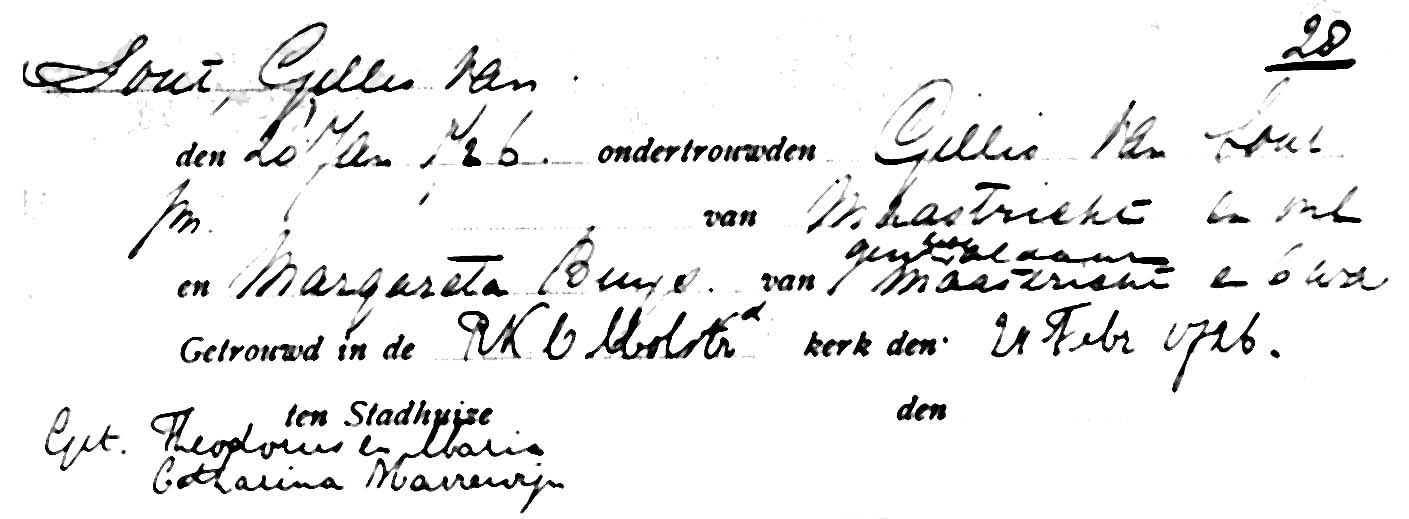 28
Sout, Gellis Van
den 28 Jan 1726. ondertrouwden Gellis Van Sout
jm. van Maastricht en
en Margareta Buys. van Maastricht en
Getrouwd in de RK kerk den 21 Febr 1726.
ten Stadhuize den
Get. Theodorus en Maria
Catharina Marrewijn